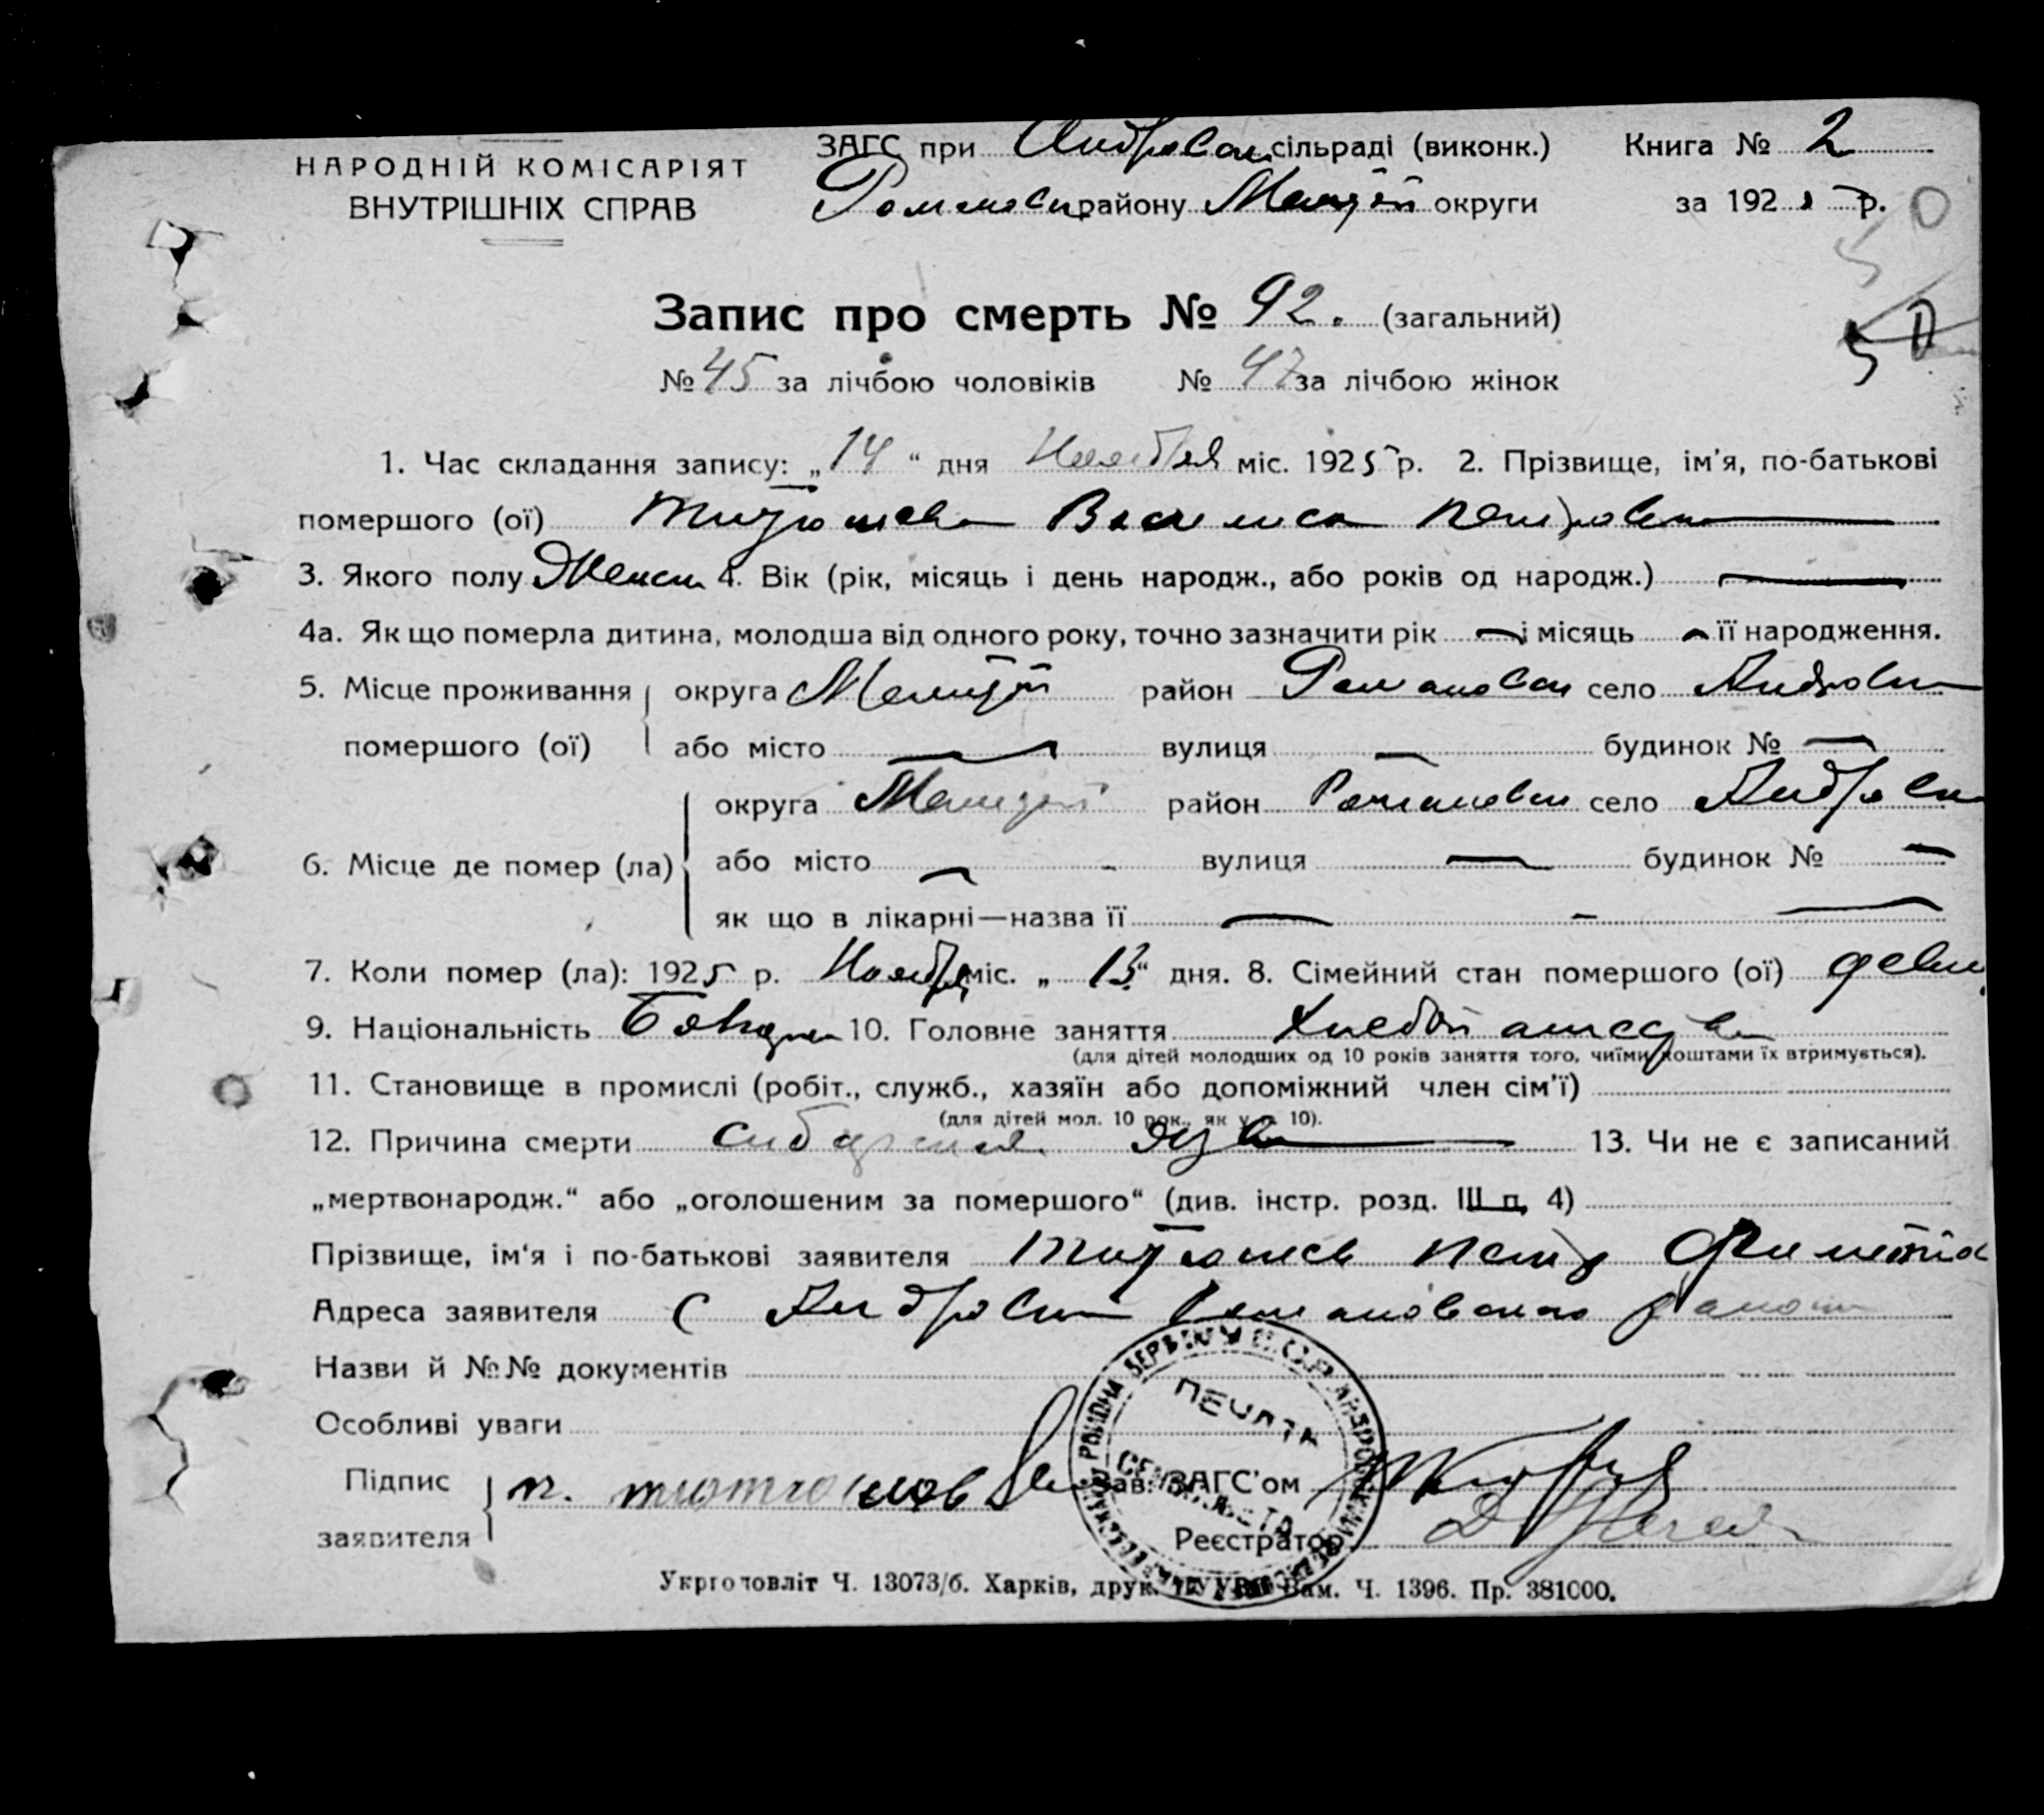 НАРОДНІЙ КОМІСАРІЯТ
ВНУТРІШНІХ СПРАВ
ЗАГС при Андровск сільраді (виконк.) Книга № 2
Романовск району Мелит округи за 192 р.
50
Запис про смерть № 92. (загальний)
50
№ 45 за лічбою чоловіків № 47 за лічбою жінок
1. Час складання запису: „14“ дня Ноября міс. 1925 р. 2. Прізвище, ім'я, по-батькові
помершого (ої) Василиса Петровна
3. Якого полу Женск 4. Вік (рік, місяць і день народж., або років од народж.) —
4а. Як що померла дитина, молодша від одного року, точно зазначити рік — і місяць — її народження.
5. Місце проживання округа Мелит район Романовск село Андровка
помершого (ої) або місто — вулиця — будинок № —
округа Мелит район Романовск село Андровка
6. Місце де помер (ла) або місто — вулиця — будинок № —
як що в лікарні—назва її — — —
7. Коли помер (ла): 1925 р. Ноября міс. „13“ дня. 8. Сімейний стан помершого (ої) девиц
9. Національність Болгарк 10. Головне заняття Хлебопашество
(для дітей молодших од 10 років заняття того, чиїми коштами їх втримується).
11. Становище в промислі (робіт., служб., хазяїн або допоміжний член сім'ї)
(для дітей мол. 10 рок., як у п. 10).
12. Причина смерти сибирская язва 13. Чи не є записаний
„мертвонародж.“ або „оголошеним за помершого“ (див. інстр. розд. III п. 4)
Прізвище, ім'я і по-батькові заявителя Петр
Адреса заявителя с Андровка Романовского района
Назви й №№ документів
Особливі уваги
ПЕЧАТЬ
Підпис п. Зав. ЗАГС'ом
заявителя Реєстратор
Укрголовліт Ч. 13073/б. Харків, друк. Зам. Ч. 1396. Пр. 381000.